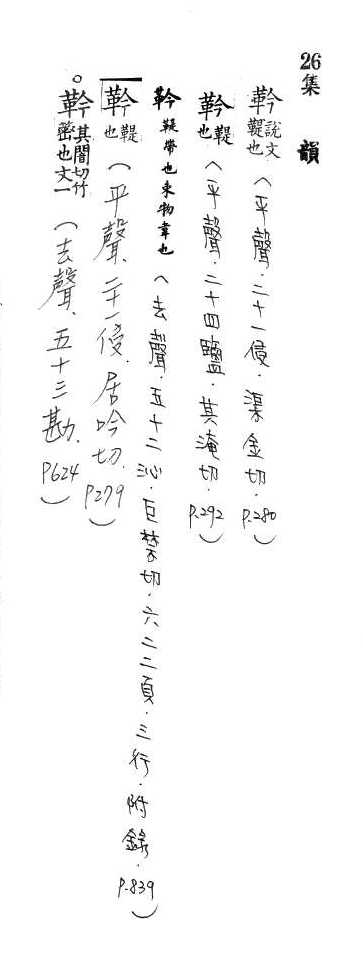 26集　韻
靲說文鞮也（平聲．二十一侵．渠金切．P.280）
靲鞮也（平聲．二十四鹽．其淹切．P.292）
靲鞮帶也束物韋也（去聲．五十二沁．巨禁切．六二二頁．三行．附錄．P.839）
靲鞮也（平聲．二十一侵．居吟切．P.279）
。靲其闇切竹密也文一（去聲．五十三勘．P624）